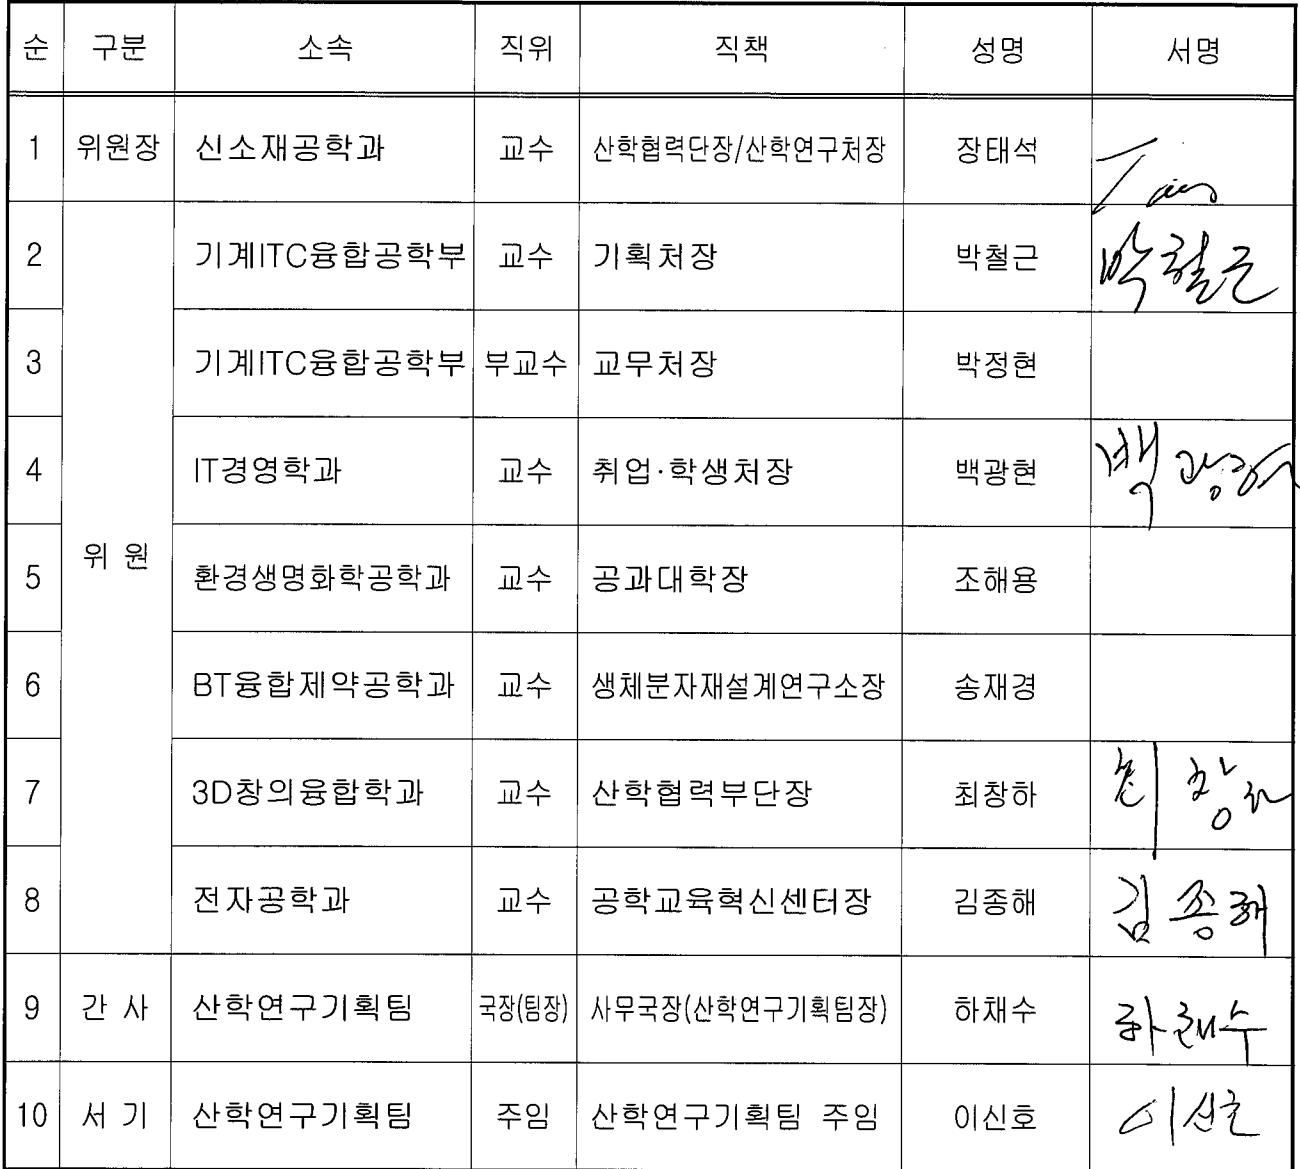 순 구분 소속 직위 직책 성명 서명
1 위원장 신소재공학과 교수 산학협력단장/산학연구처장 장태석
2 기계ITC융합공학부 교수 기획처장 박철근 박철근
3 기계ITC융합공학부 부교수 교무처장 박정현
4 IT경영학과 교수 취업·학생처장 백광현 백광현
위 원
5 환경생명화학공학과 교수 공과대학장 조해용
6 BT융합제약공학과 교수 생체분자재설계연구소장 송재경
7 3D창의융합학과 교수 산학협력부단장 최창하 최창하
8 전자공학과 교수 공학교육혁신센터장 김종해 김종해
9 간 사 산학연구기획팀 국장(팀장) 사무국장(산학연구기획팀장) 하채수 하채수
10 서 기 산학연구기획팀 주임 산학연구기획팀 주임 이신호 이신호